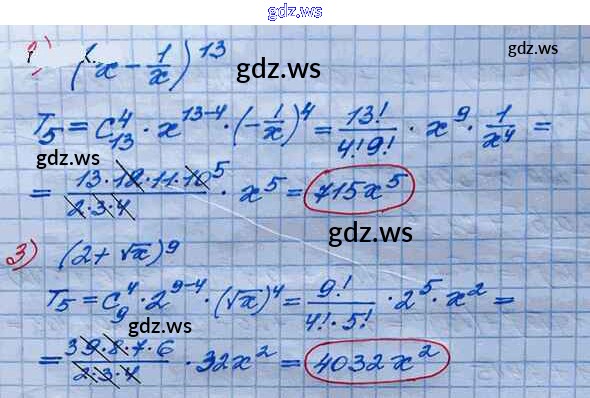 gdz.ws
2) (x − 1/x)^13
gdz.ws
gdz.ws
T₅ = C₁₃⁴ · x^(13−4) · (−1/x)⁴ = 13!/(4!9!) · x⁹ · 1/x⁴ =
gdz.ws
= (13·12·11·10⁵)/(2·3·4) · x⁵ = 715x⁵
gdz.ws
3) (2 + √x)⁹
T₅ = C₉⁴ · 2^(9−4) · (√x)⁴ = 9!/(4!·5!) · 2⁵ · x² =
gdz.ws
gdz.ws
= (3 9·8·7·6)/(2·3·4) · 32x² = 4032x²